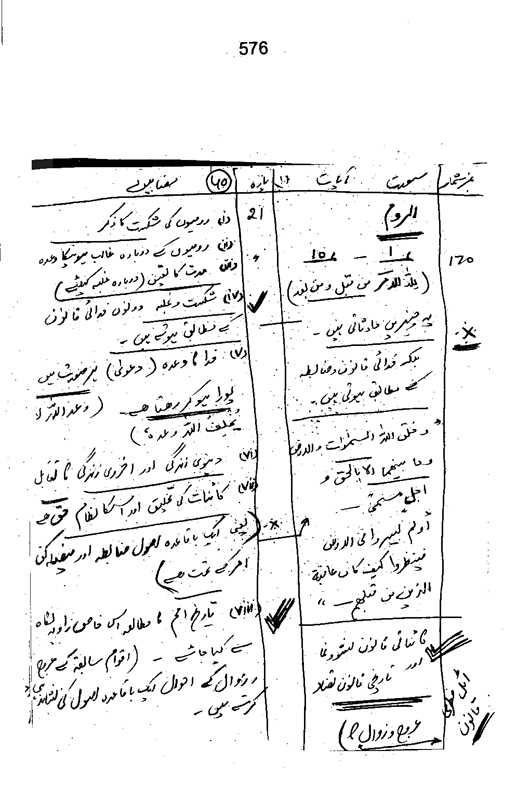 576
نمبر شمار سورت آیات پارہ ۶۵ مضامین
۱۲۰
الروم
۱ - ۱۵
(للہ الامر من قبل ومن بعد)
یہ چیزیں حادثاتی نہیں -
بلکہ خدائی قانون و ضابطہ
کے مطابق ہوتی ہیں -
و خلق اللہ السمٰوٰت والارض
وما بینھما الا بالحق و
اجل مسمّیٰ -
أولم یسیروا فی الارض
فینظروا کیف کان عاقبة
الذین من قبلھم
کائناتی قانون نشوونما
اور تاریخی قانون
عروج و زوال
قانون
21
(i) رومیوں کی شکست کا ذکر
(ii) رومیوں کے دوبارہ غالب ہونیکا وعدہ
(iii) مدت کا تعین (دوبارہ غلبہ کیلئے)
(iv) شکست و غلبہ دونوں خدائی قانون
کے مطابق ہوتے ہیں -
(v) خدا کا وعدہ (دعویٰ) ہر صورت میں
پورا ہو کر رھتا ھے (وعد اللہ لا
یخلف اللہ وعدہ)
(vi) دنیوی زندگی اور اخروی زندگی کا تقابل
(vii) کائنات کی تخلیق اور اسکا نظام حق ھے
(یعنی ایک باقاعدہ اصول ضابطہ اور
امر کے تحت ھے)
(viii) تاریخ امم کا مطالعہ اس خاص زاویہ نگاہ
سے کیا جائے - (اقوام سابقہ کے عروج
و زوال کے احوال ایک باقاعدہ اصول کی نشاندہی
کرتے ہیں -